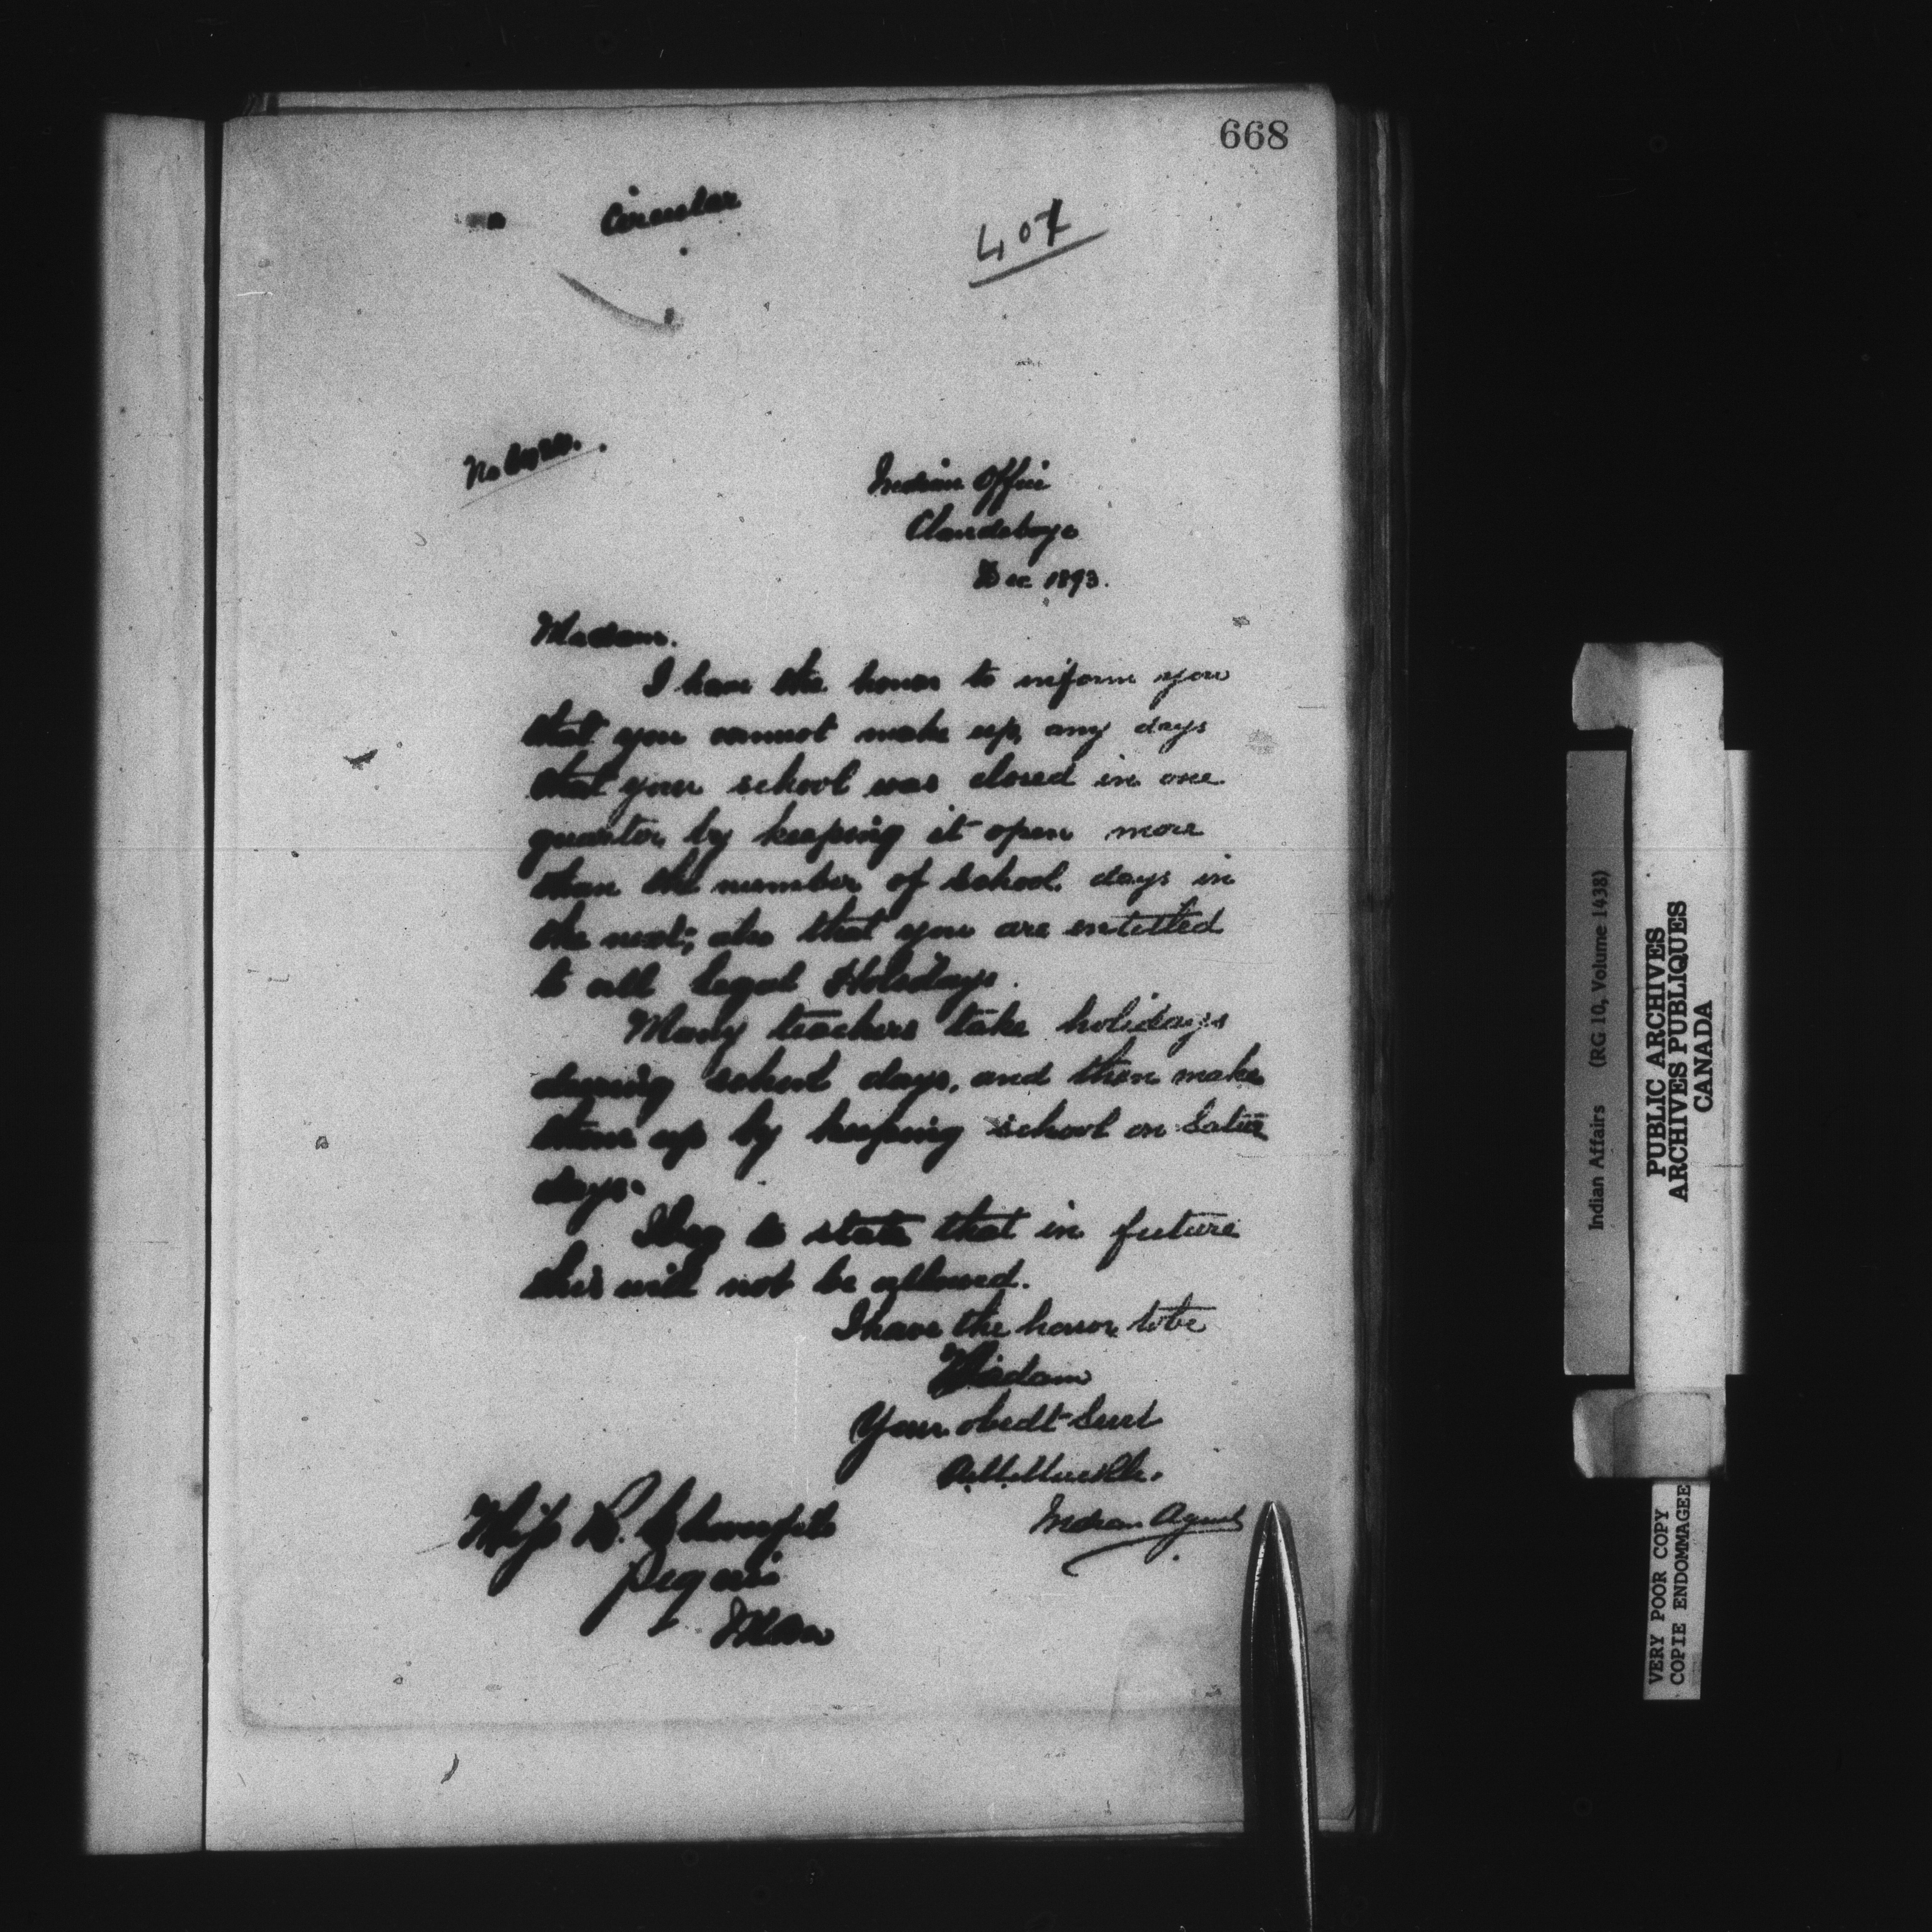 668
Circular
407
No
Indian Office
Clandeboye
Dec 1893.
Madam.
I have the honor to inform you
that you cannot make up, any days
that your school was closed in one
quarter, by keeping it open more
than the number of school days in
the next; also that you are entitled
to all Legal Holidays.
Many teachers take holidays
during school days, and then make
them up by keeping school on Satur
days.
I beg to state that in future
this will not be allowed.
I have the honor to be
Madam
Your obedt Servt
Indian Agent
Miss
Peguis
Indian Affairs (RG 10, Volume 1438)
PUBLIC ARCHIVES
ARCHIVES PUBLIQUES
CANADA
VERY POOR COPY
COPIE ENDOMMAGEE